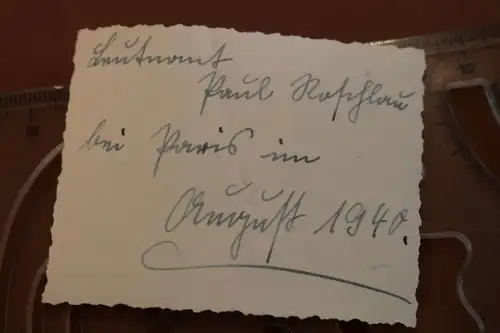 Leutnant
Paul Roschlau
bei Paris im
August 1940.